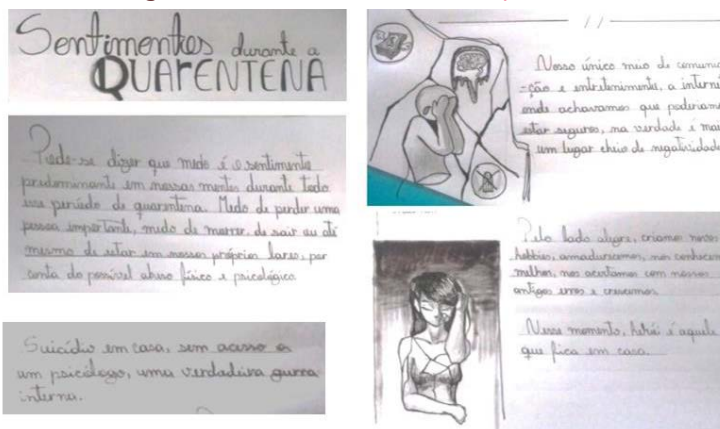 Sentimentos durante a
QUArENTENA
Pode-se dizer que medo é o sentimento
predominante em nossas mentes durante todo
esse período de quarentena. Medo de perder uma
pessoa importante, medo de morrer, de sair ou até
mesmo de estar em nossos próprios lares, por
conta do possível abuso físico e psicológico.
Suicídio em casa, sem acesso a
um psicólogo, uma verdadeira guerra
interna.
Nosso único meio de comunica
-ção e entretenimento, a interne
onde achavamos que poderiamo
estar seguros, na verdade é mai
um lugar cheio de negatividade
Pelo lado alegre, criamos novos
hobbies, amadurecemos, nos conhecem
melhor, nos acertamos com nossos
antigos erros e crescemos.
Nesse momento, herói é aquele
que fica em casa.